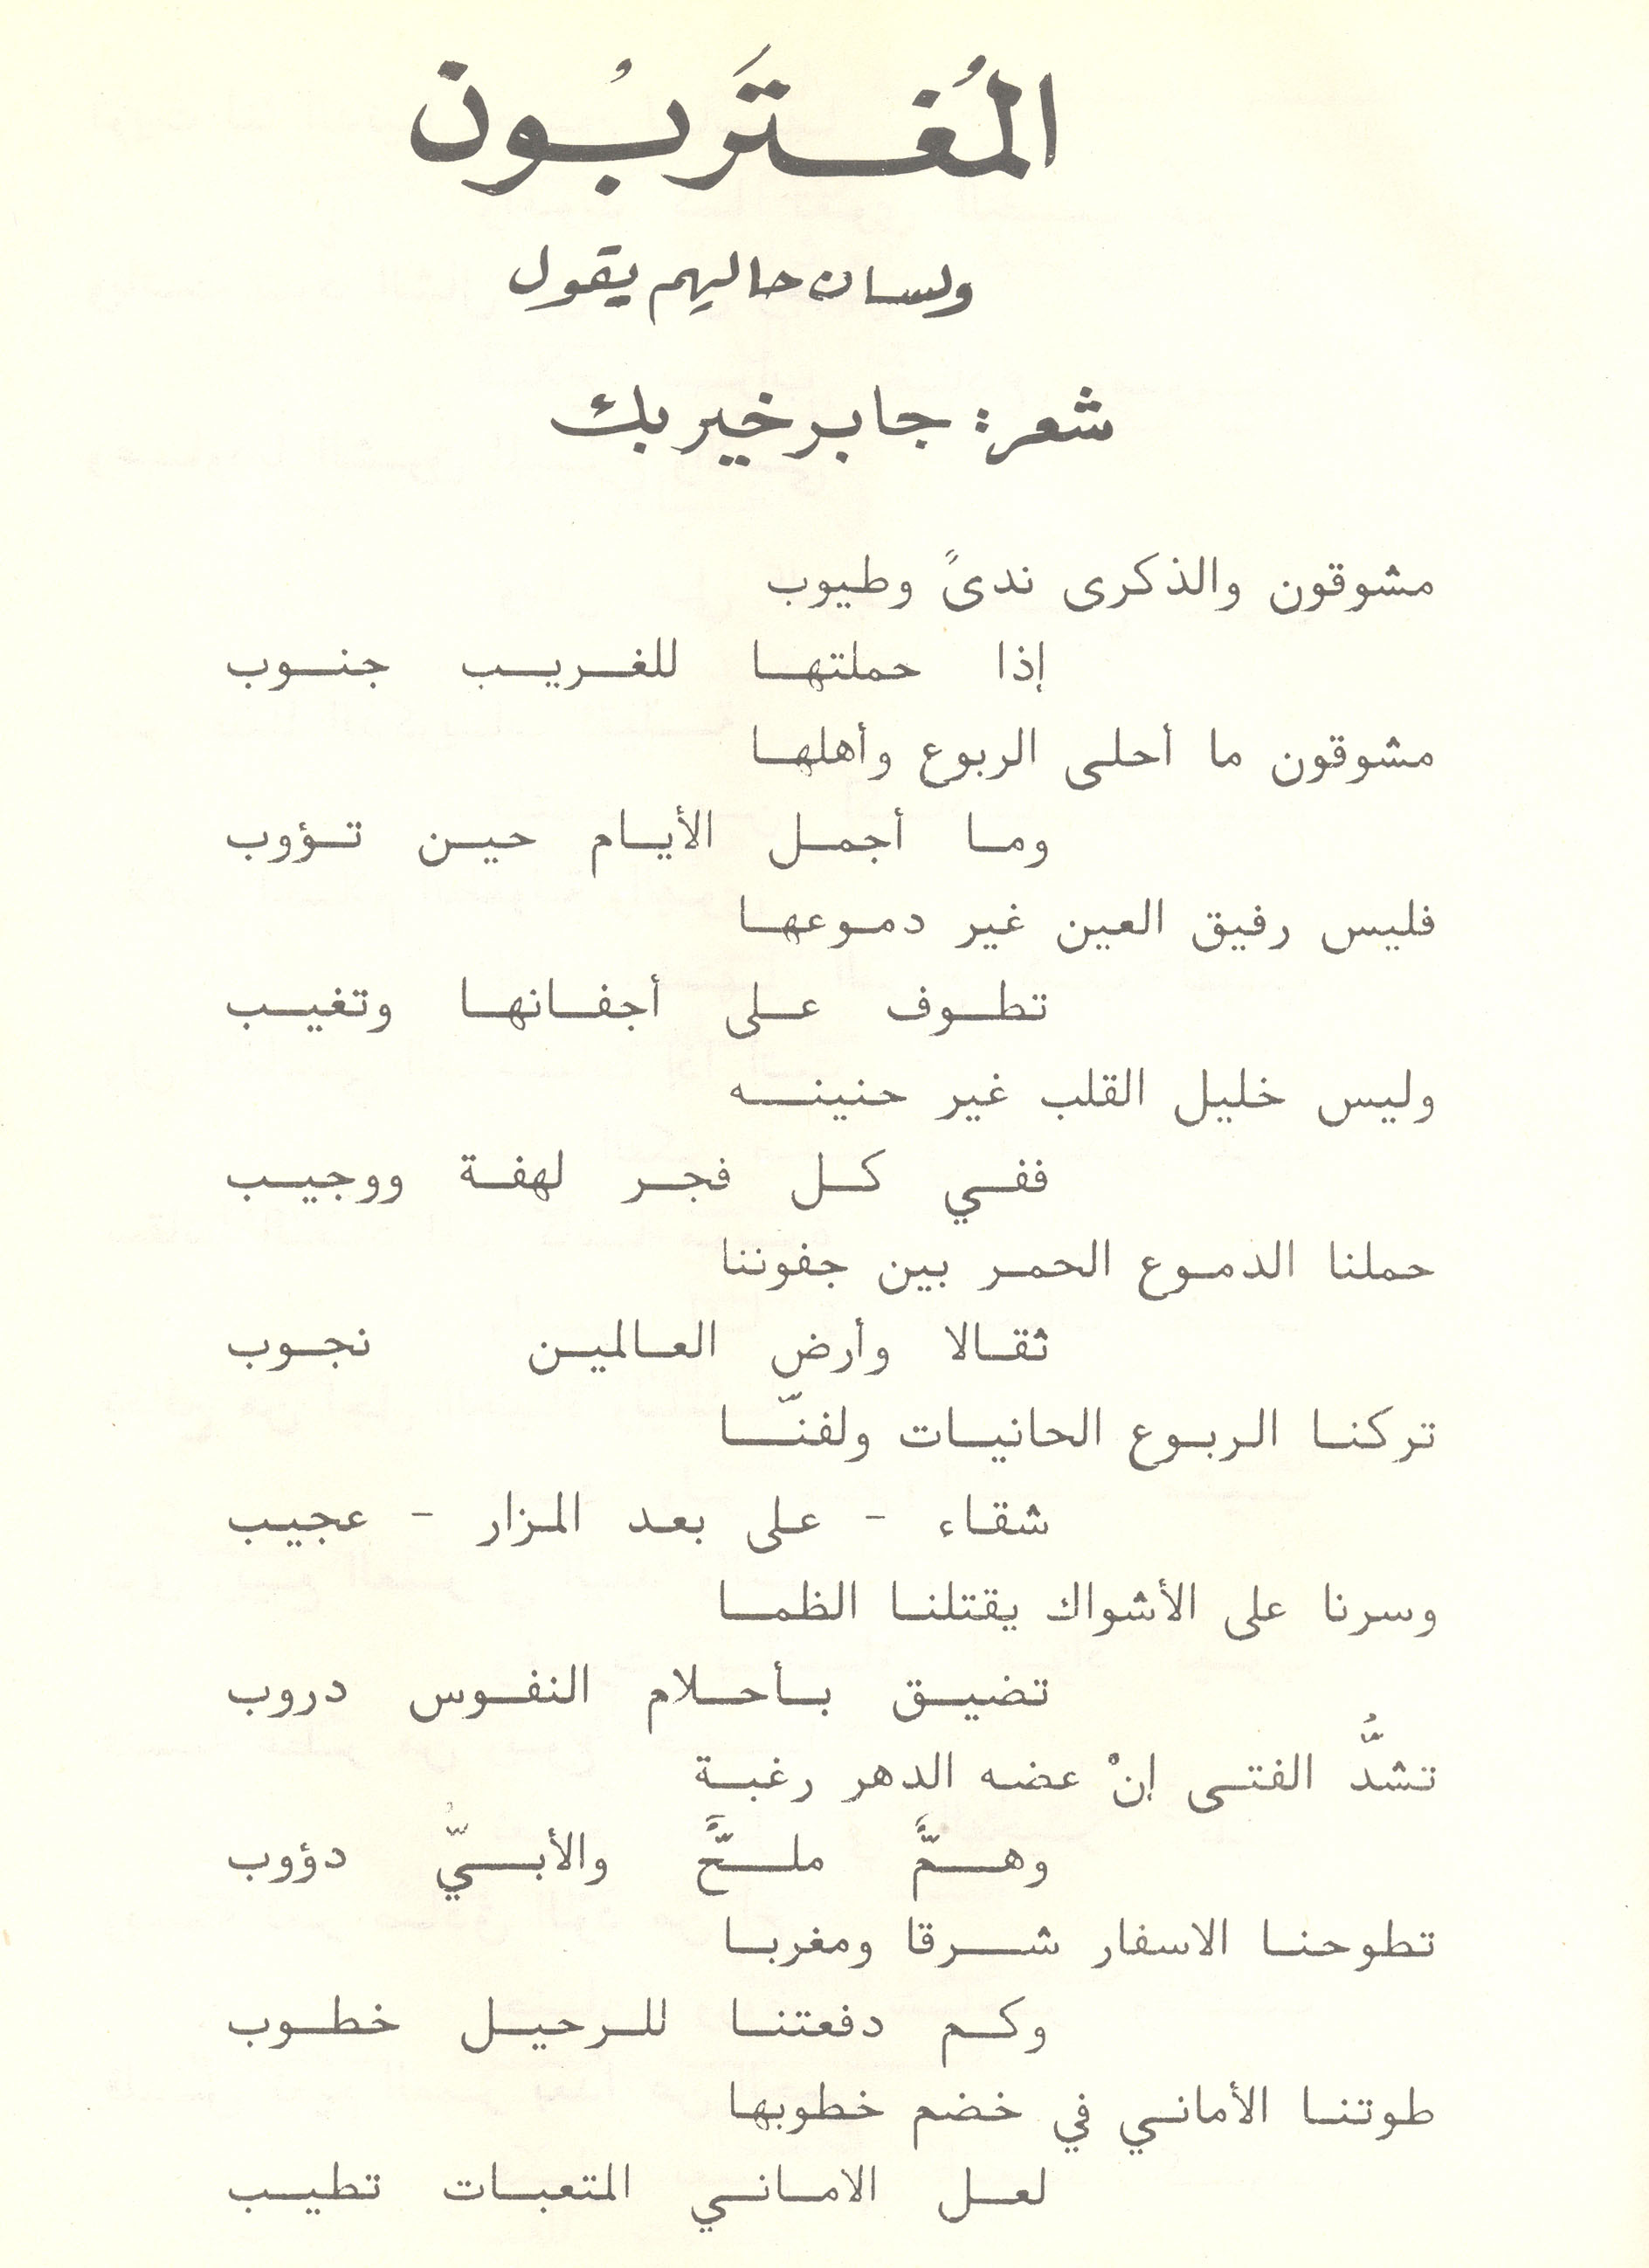 المُغتَربُون
ولسان حاليهم يقول
شعر: جابر خير بك
مشوقون والذكرى ندىً وطيوب
إذا حملتها للغريب جنوب
مشوقون ما أحلى الربوع وأهلها
وما أجمل الأيام حين تؤوب
فليس رفيق العين غير دموعها
تطوف على أجفانها وتغيب
وليس خليل القلب غير حنينه
ففي كل فجر لهفة ووجيب
حملنا الدموع الحمر بين جفوننا
ثقالا وأرض العالمين نجوب
تركنا الربوع الحانيات ولفنّا
شقاء - على بعد المزار - عجيب
وسرنا على الأشواك يقتلنا الظما
تضيق بأحلام النفوس دروب
تشدُّ الفتى إنْ عضه الدهر رغبة
وهمٌّ ملحٌّ والأبيُّ دؤوب
تطوحنا الاسفار شرقا ومغربا
وكم دفعتنا للرحيل خطوب
طوتنا الأماني في خضم خطوبها
لعل الاماني المتعبات تطيب